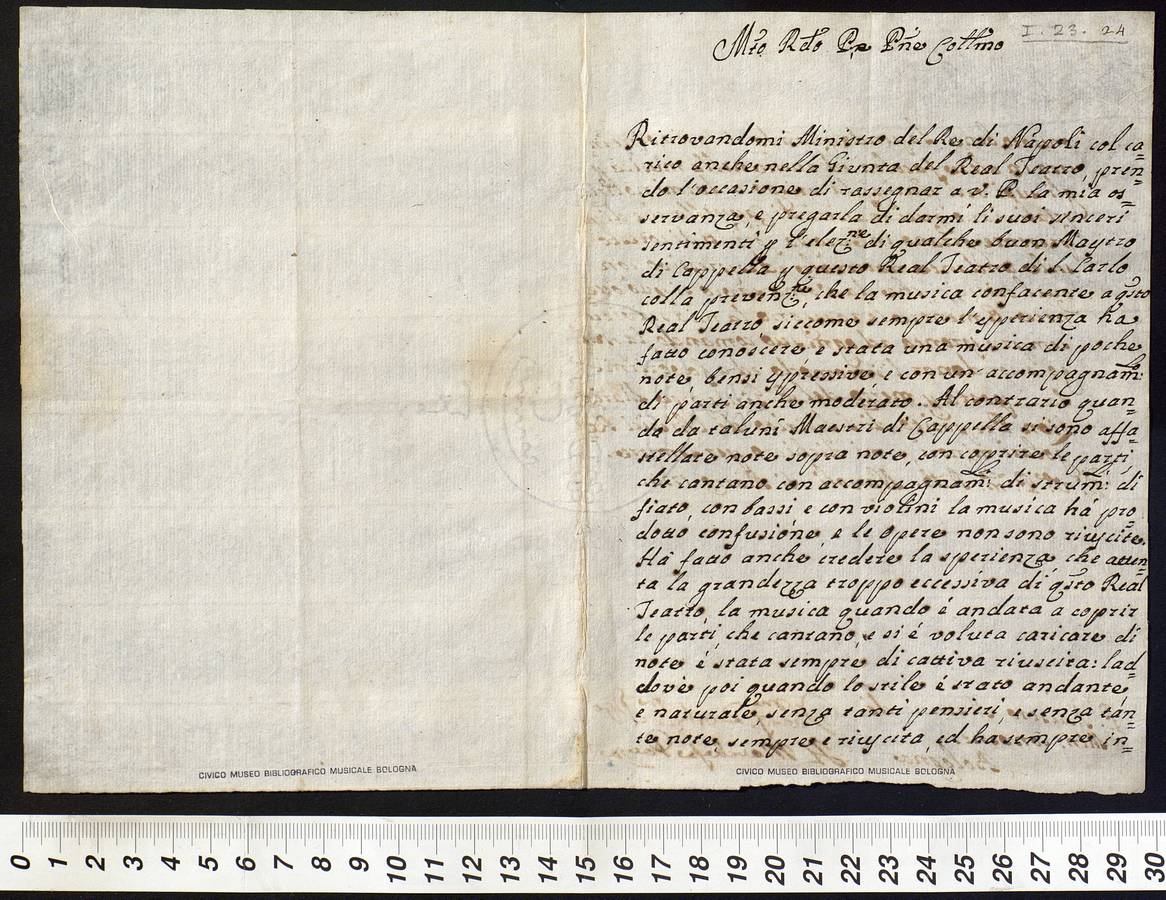 I. 23. 24
Mto Rdo Pre Pne Collmo
Ritrovandomi Ministro del Re di Napoli col ca=
rico anche nella Giunta del Real Teatro, pren=
do l'occasione di rassegnar a V. P. la mia os=
servanza, e pregarla di darmi li suoi sinceri
sentimenti p l'elezne di qualche buon Maestro
di Cappella p questo Real Teatro di S. Carlo
colla prevenzne, che la musica confacente a qsto
Real Teatro, siccome sempre l'esperienza ha
fatto conoscere, e stata una musica di poche
note, bensi espressive, e con un' accompagnam:to
di parti anche moderato. Al contrario quan=
do da taluni Maestri di Cappella si sono affa=
stellate note sopra note, con coprire le parti,
che cantano con accompagnam:ti di strum:ti di
fiato, con bassi e con violini la musica há pro=
dotto confusione, e le Opere non sono riuscite.
Há fatto anche credere la sperienza, che atten=
ta la grandezza troppo eccessiva di qsto Real
Teatro, la musica quando é andata a coprir
le parti, che cantano, e si é voluta caricare di
note é stata sempre di cattiva riuscita: lad=
dove poi quando lo stile é stato andante,
e naturale, senza tanti pensieri, e senza tan=
te note, sempre e riuscita, ed ha sempre in=
CIVICO MUSEO BIBLIOGRAFICO MUSICALE BOLOGNA
CIVICO MUSEO BIBLIOGRAFICO MUSICALE BOLOGNA
0 1 2 3 4 5 6 7 8 9 10 11 12 13 14 15 16 17 18 19 20 21 22 23 24 25 26 27 28 29 30